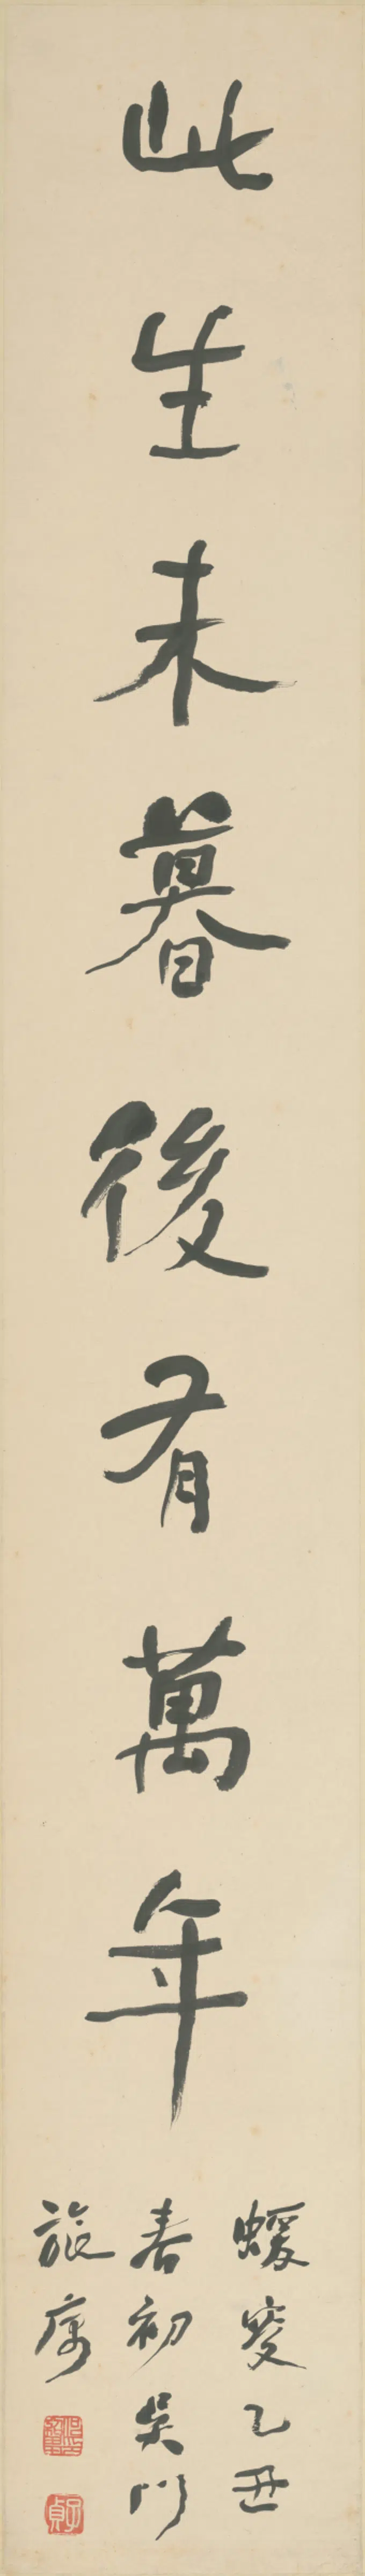 此生未暮後有萬年
蝯叟乙丑
春初吳門
旅寓
子貞